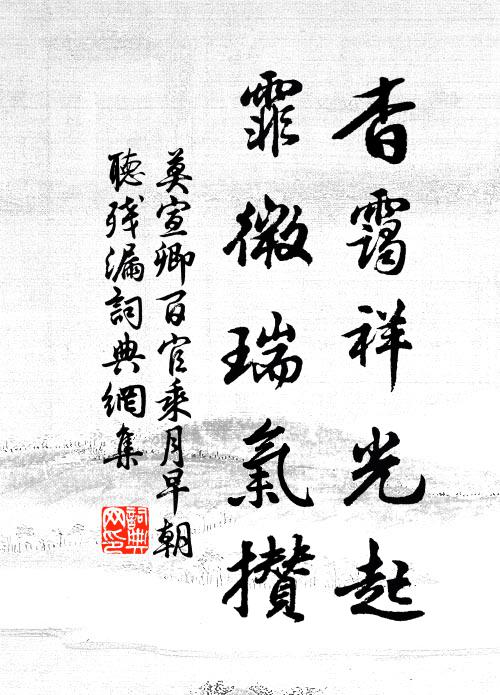 杳靄祥光起
霏微瑞氣攢
莫宣卿百官乘月早朝
聽殘漏詞典網集
詞典